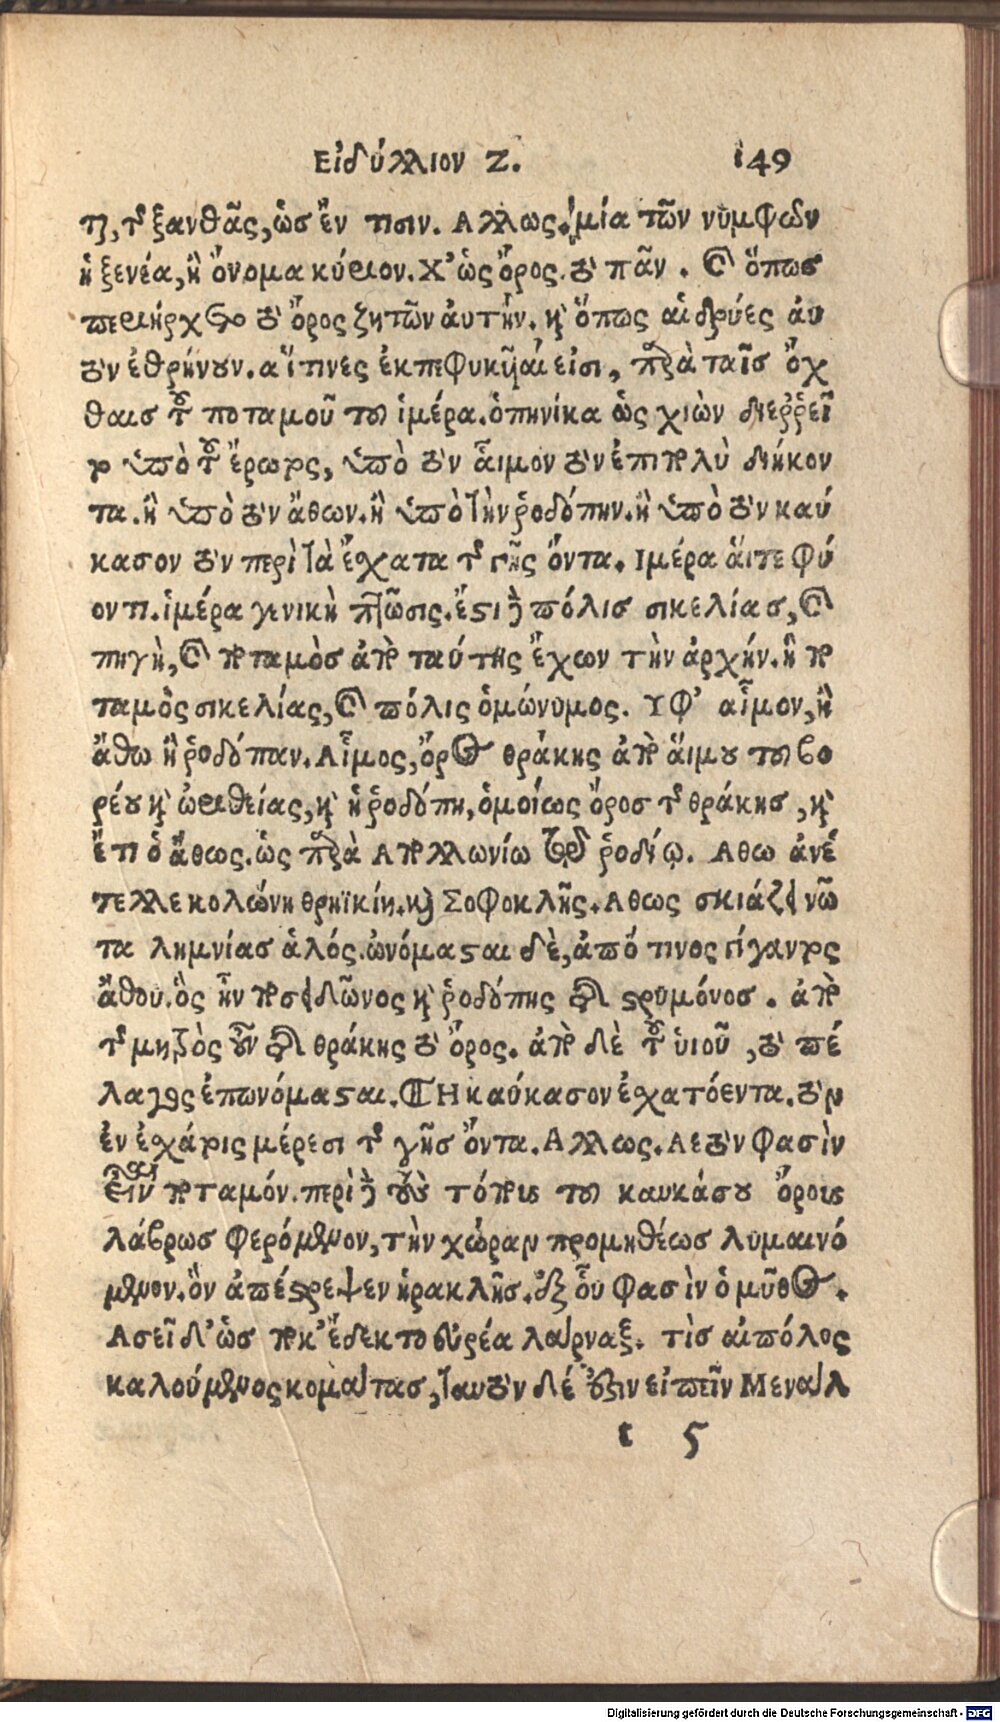 Εἰδύλλιον Ζ. 149
τη, τῆς ξανθᾶς, ὡς ἔν τισιν. Αλλως. μία τῶν νυμφῶν
ἡ ξενέα, ἢ ὄνομα κύριον. Χ' ὡς ὄρος. τὸ πᾶν. καὶ ὅπως
περιήρχετο τὸ ὄρος ζητῶν ἀυτὴν. καὶ ὅπως αἱ δρύες ἀυ
τὸν ἐθρήνουν. αἵτινες ἐκπεφυκῆαί εἰσι, παρὰ ταῖς ὄχ
θαις τοῦ ποταμοῦ του ἱμέρα. ὁπηνίκα ὡς χιὼν διεῤῥεῖ
το ὑπὸ τοῦ ἔρωτος, ὑπὸ τὸν αἷμον τὸν ἐπιπολὺ διήκον
τα. ἢ ὑπὸ τὸν ἄθων. ἢ ὑπὸ τὴν ῥοδόπην. ἢ ὑπὸ τὸν καύ
κασον τὸν περὶ τὰ ἔσχατα τῆς γῆς ὄντα. Ιμέρα ἅιτε φύ
οντι. ἱμέρα γενικὴ πτῶσις. ἔστι δὲ πόλις σικελίας, καὶ
πηγὴ, καὶ ποταμὸς ἀπὸ ταύτης ἔχων τὴν ἀρχήν. ἢ πο
ταμὸς σικελίας, καὶ πόλις ὁμώνυμος. Υφ' αἷμον, ἢ
ἄθω ἢ ῥοδόπαν. Αἷμος, ὄρος θράκης ἀπὸ ἅιμου του βο
ρέου καὶ ὠριθείας, καὶ ἡ ῥοδόπη, ὁμοίως ὄρος τῆς θράκης, καὶ
ἔτι ὁ ἄθως. ὡς παρὰ Απολλωνίω τῷ ῥοδίῳ. Αθω ἀνέ
τελλε κολώνη θρηϊκίη. καὶ Σοφοκλῆς. Αθως σκιάζει νῶ
τα λημνίας ἁλός. ὠνόμασται δὲ, ἀπό τινος γίγαντος
ἄθου. ὃς ἦν ποσειδῶνος καὶ ῥοδόπης τῆς στρυμόνος. ἀπὸ
τῆς μητρὸς οὖν τῆς θράκης τὸ ὄρος. ἀπὸ δὲ τοῦ ὑιοῦ, τὸ πέ
λαγος ἐπωνόμασται. ¶ Η καύκασον ἐσχατόεντα. τὸν
ἐν ἐσχάτοις μέρεσι τῆς γῆς ὄντα. Αλλως. Αετὸν φασὶν
εἶναι ποταμόν. περὶ δὲ τοὺς τόπους του καυκάσου ὄρους
λάβρως φερόμενον, τὴν χώραν προμηθέως λυμαινό
μενον. ὃν ἀπέστρεψεν ἡρακλῆς. ἐξ οὗ φασὶν ὁ μῦθος.
Ασεῖ δ' ὡς ποκ' ἔδεκτο εὐρέα λάρναξ. τὶς αἰπόλος
καλούμενος κομάτας, ταυτὸν δέ ἐστιν εἰπεῖν Μενάλ
t 5